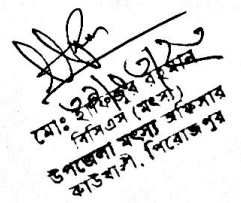 মোঃ হাফিজুর রহমান
বিসিএস (মৎস্য)
উপজেলা মৎস্য অফিসার
কাউখালী, পিরোজপুর